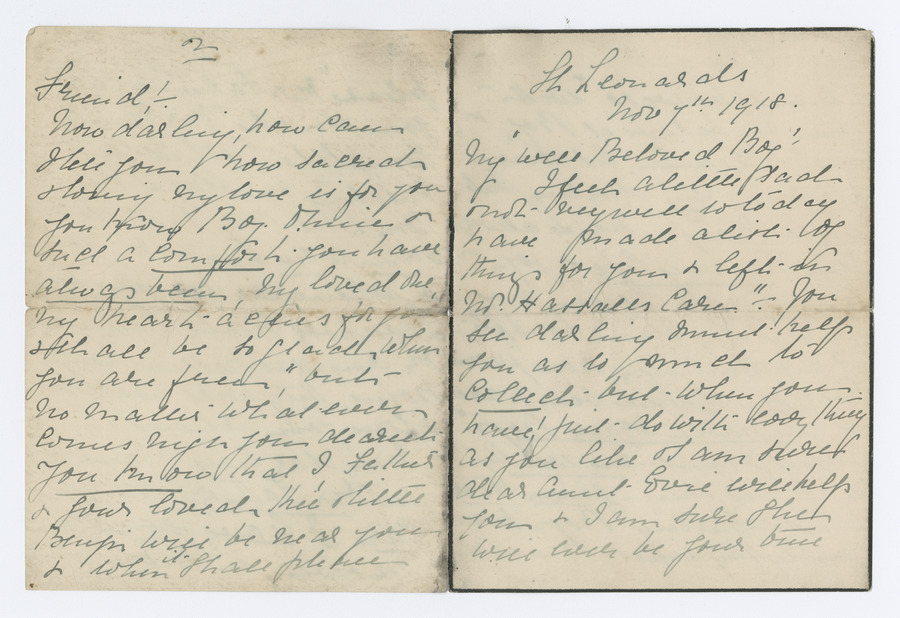 St Leonards
Nov 7th 1918.
My well Beloved Boy!
I feel a little sad
& not very well so to day
have made a list of
things for you & left in
Mr. Hassells Care" – You
see darling must help
you as to much to
Collect but when you
have just do with every thing
as you like I am sure
dear Aunt Evie will help
you & I am sure She
will ever be your true
2
Friend!
Now darling, how can
I tell you how sacred
my love is for you
you know Boy
such a Comfort you have
always been My loved One!
My heart aches for you
& shall be so glad when
you are free", but
no matter what ever
Comes nigh you dearest
You know that I Father
& your loved
Benji will be near you
& when it shall please